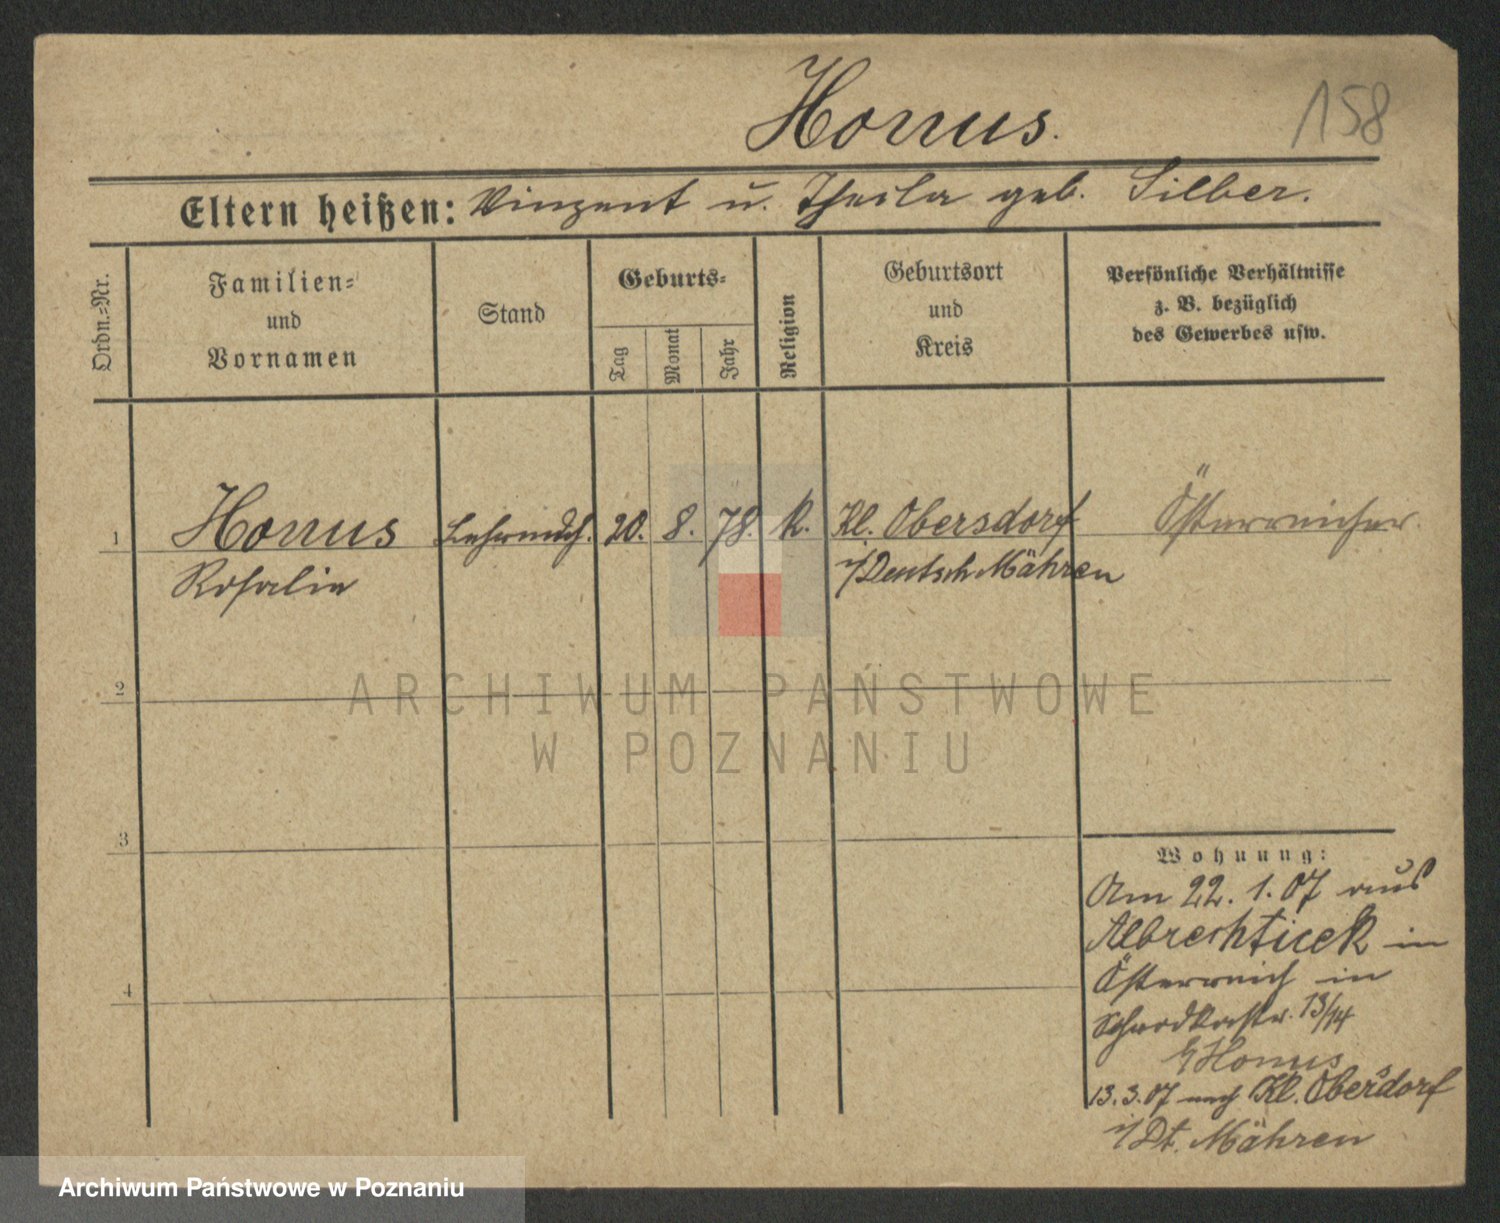 Honus.
158
Eltern heißen: Vinzent u. Thecla geb. Silber.
Ordn.-Nr.
Familien-
und
Vornamen
Stand
Geburts-
Tag
Monat
Jahr
Religion
Geburtsort
und
Kreis
Persönliche Verhältnisse
z. B. bezüglich
des Gewerbes usw.
1 Honus 20. 8. 78. k. Kl. Obersdorf Österreicher.
Rosalie i/Deutsch Mähren
2
3
4
Wohnung:
Am 22. 1. 07 aus
in
Österreich in
13/14
Honus
13. 3. 07 nach Kl. Obersdorf
i/Dt. Mähren
ARCHIWUM PAŃSTWOWE
W POZNANIU
Archiwum Państwowe w Poznaniu